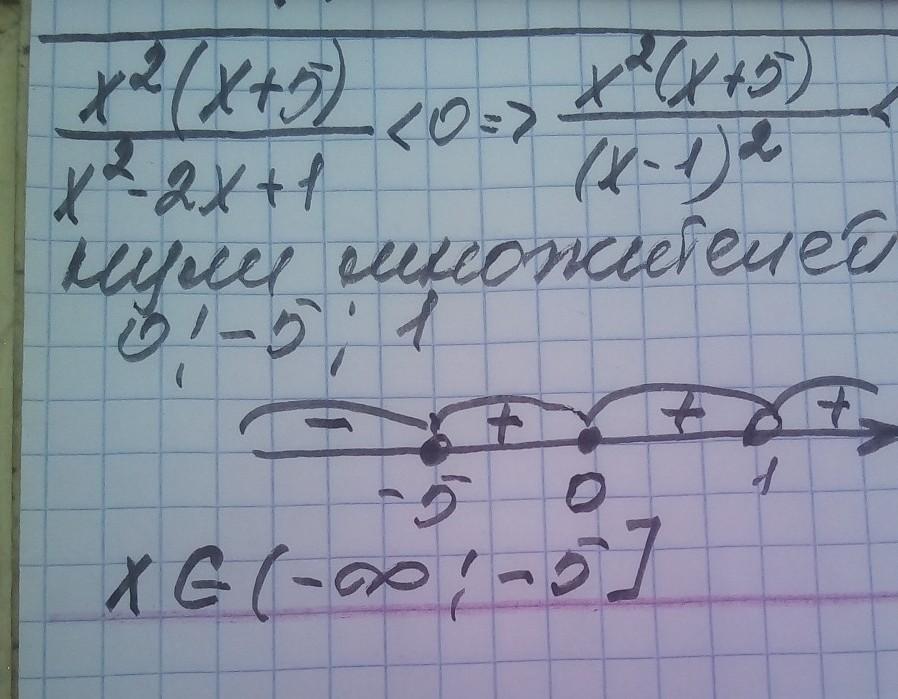 x²(x+5)/x²-2x+1 <0 => x²(x+5)/(x-1)² <
нули множителей
0; -5; 1
- + + +
-5 0 1
x∈(-∞; -5]